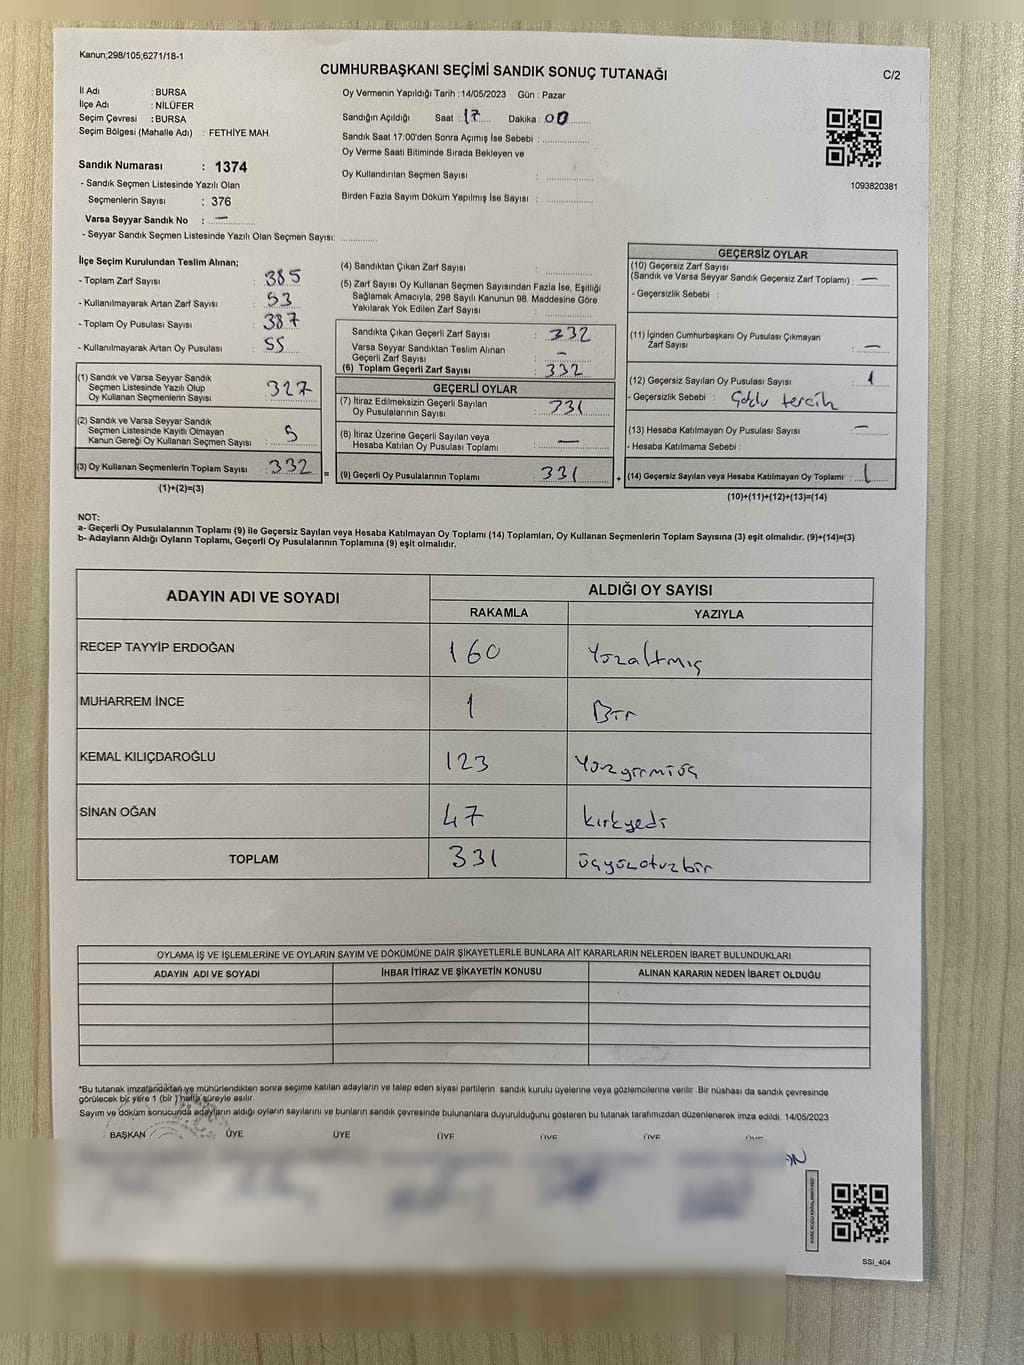 Kanun;298/105;6271/18-1
CUMHURBAŞKANI SEÇİMİ SANDIK SONUÇ TUTANAĞI
C/2
İl Adı : BURSA
İlçe Adı : NİLÜFER
Seçim Çevresi : BURSA
Seçim Bölgesi (Mahalle Adı) : FETHİYE MAH.
Oy Vermenin Yapıldığı Tarih : 14/05/2023 Gün : Pazar
Sandığın Açıldığı Saat : 17 Dakika : 00
Sandık Saat 17:00'den Sonra Açımış İse Sebebi :
Oy Verme Saati Bitiminde Sırada Bekleyen ve
Oy Kullandırılan Seçmen Sayısı :
Birden Fazla Sayım Döküm Yapılmış İse Sayısı :
1093820381
Sandık Numarası : 1374
- Sandık Seçmen Listesinde Yazılı Olan
Seçmenlerin Sayısı : 376
Varsa Seyyar Sandık No : —
- Seyyar Sandık Seçmen Listesinde Yazılı Olan Seçmen Sayısı:
İlçe Seçim Kurulundan Teslim Alınan;
- Toplam Zarf Sayısı : 385
- Kullanılmayarak Artan Zarf Sayısı : 53
- Toplam Oy Pusulası Sayısı : 387
- Kullanılmayarak Artan Oy Pusulası : 55
(1) Sandık ve Varsa Seyyar Sandık
Seçmen Listesinde Yazılı Olup
Oy Kullanan Seçmenlerin Sayısı : 327
(2) Sandık ve Varsa Seyyar Sandık
Seçmen Listesinde Kayıtlı Olmayan
Kanun Gereği Oy Kullanan Seçmen Sayısı : 5
(3) Oy Kullanan Seçmenlerin Toplam Sayısı : 332
(1)+(2)=(3)
=
(4) Sandıktan Çıkan Zarf Sayısı :
(5) Zarf Sayısı Oy Kullanan Seçmen Sayısından Fazla İse, Eşitliği
Sağlamak Amacıyla; 298 Sayılı Kanunun 98. Maddesine Göre
Yakılarak Yok Edilen Zarf Sayısı :
Sandıkta Çıkan Geçerli Zarf Sayısı : 332
Varsa Seyyar Sandıktan Teslim Alınan
Geçerli Zarf Sayısı : -
(6) Toplam Geçerli Zarf Sayısı : 332
GEÇERLİ OYLAR
(7) İtiraz Edilmeksizin Geçerli Sayılan
Oy Pusulalarının Sayısı : 331
(8) İtiraz Üzerine Geçerli Sayılan veya
Hesaba Katılan Oy Pusulası Toplamı : —
(9) Geçerli Oy Pusulalarının Toplamı : 331
+
GEÇERSİZ OYLAR
(10) Geçersiz Zarf Sayısı
(Sandık ve Varsa Seyyar Sandık Geçersiz Zarf Toplamı) : —
- Geçersizlik Sebebi :
(11) İçinden Cumhurbaşkanı Oy Pusulası Çıkmayan
Zarf Sayısı : —
(12) Geçersiz Sayılan Oy Pusulası Sayısı : 1
- Geçersizlik Sebebi : Çoklu tercih
(13) Hesaba Katılmayan Oy Pusulası Sayısı : —
- Hesaba Katılmama Sebebi :
(14) Geçersiz Sayılan veya Hesaba Katılmayan Oy Toplamı : 1
(10)+(11)+(12)+(13)=(14)
NOT:
a- Geçerli Oy Pusulalarının Toplamı (9) ile Geçersiz Sayılan veya Hesaba Katılmayan Oy Toplamı (14) Toplamları, Oy Kullanan Seçmenlerin Toplam Sayısına (3) eşit olmalıdır. (9)+(14)=(3)
b- Adayların Aldığı Oyların Toplamı, Geçerli Oy Pusulalarının Toplamına (9) eşit olmalıdır.
ADAYIN ADI VE SOYADI ALDIĞI OY SAYISI
RAKAMLA YAZIYLA
RECEP TAYYİP ERDOĞAN 160 Yüzaltmış
MUHARREM İNCE 1 Bir
KEMAL KILIÇDAROĞLU 123 Yüzyirmiüç
SİNAN OĞAN 47 kırkyedi
TOPLAM 331 üçyüzotuzbir
OYLAMA İŞ VE İŞLEMLERİNE VE OYLARIN SAYIM VE DÖKÜMÜNE DAİR ŞİKAYETLERLE BUNLARA AİT KARARLARIN NELERDEN İBARET BULUNDUKLARI
ADAYIN ADI VE SOYADI İHBAR İTİRAZ VE ŞİKAYETİN KONUSU ALINAN KARARIN NEDEN İBARET OLDUĞU
*Bu tutanak imzalandıktan ve mühürlendikten sonra seçime katılan adayların ve talep eden siyasi partilerin sandık kurulu üyelerine veya gözlemcilerine verilir. Bir nüshası da sandık çevresinde
görülecek bir yere 1 (bir ) hafta süreyle asılır.
Sayım ve döküm sonucunda adayların aldığı oyların sayılarını ve bunların sandık çevresinde bulunanlara duyurulduğunu gösteren bu tutanak tarafımızdan düzenlenerek imza edildi. 14/05/2023
BAŞKAN ÜYE ÜYE ÜYE ÜYE ÜYE ÜYE
SSI_404